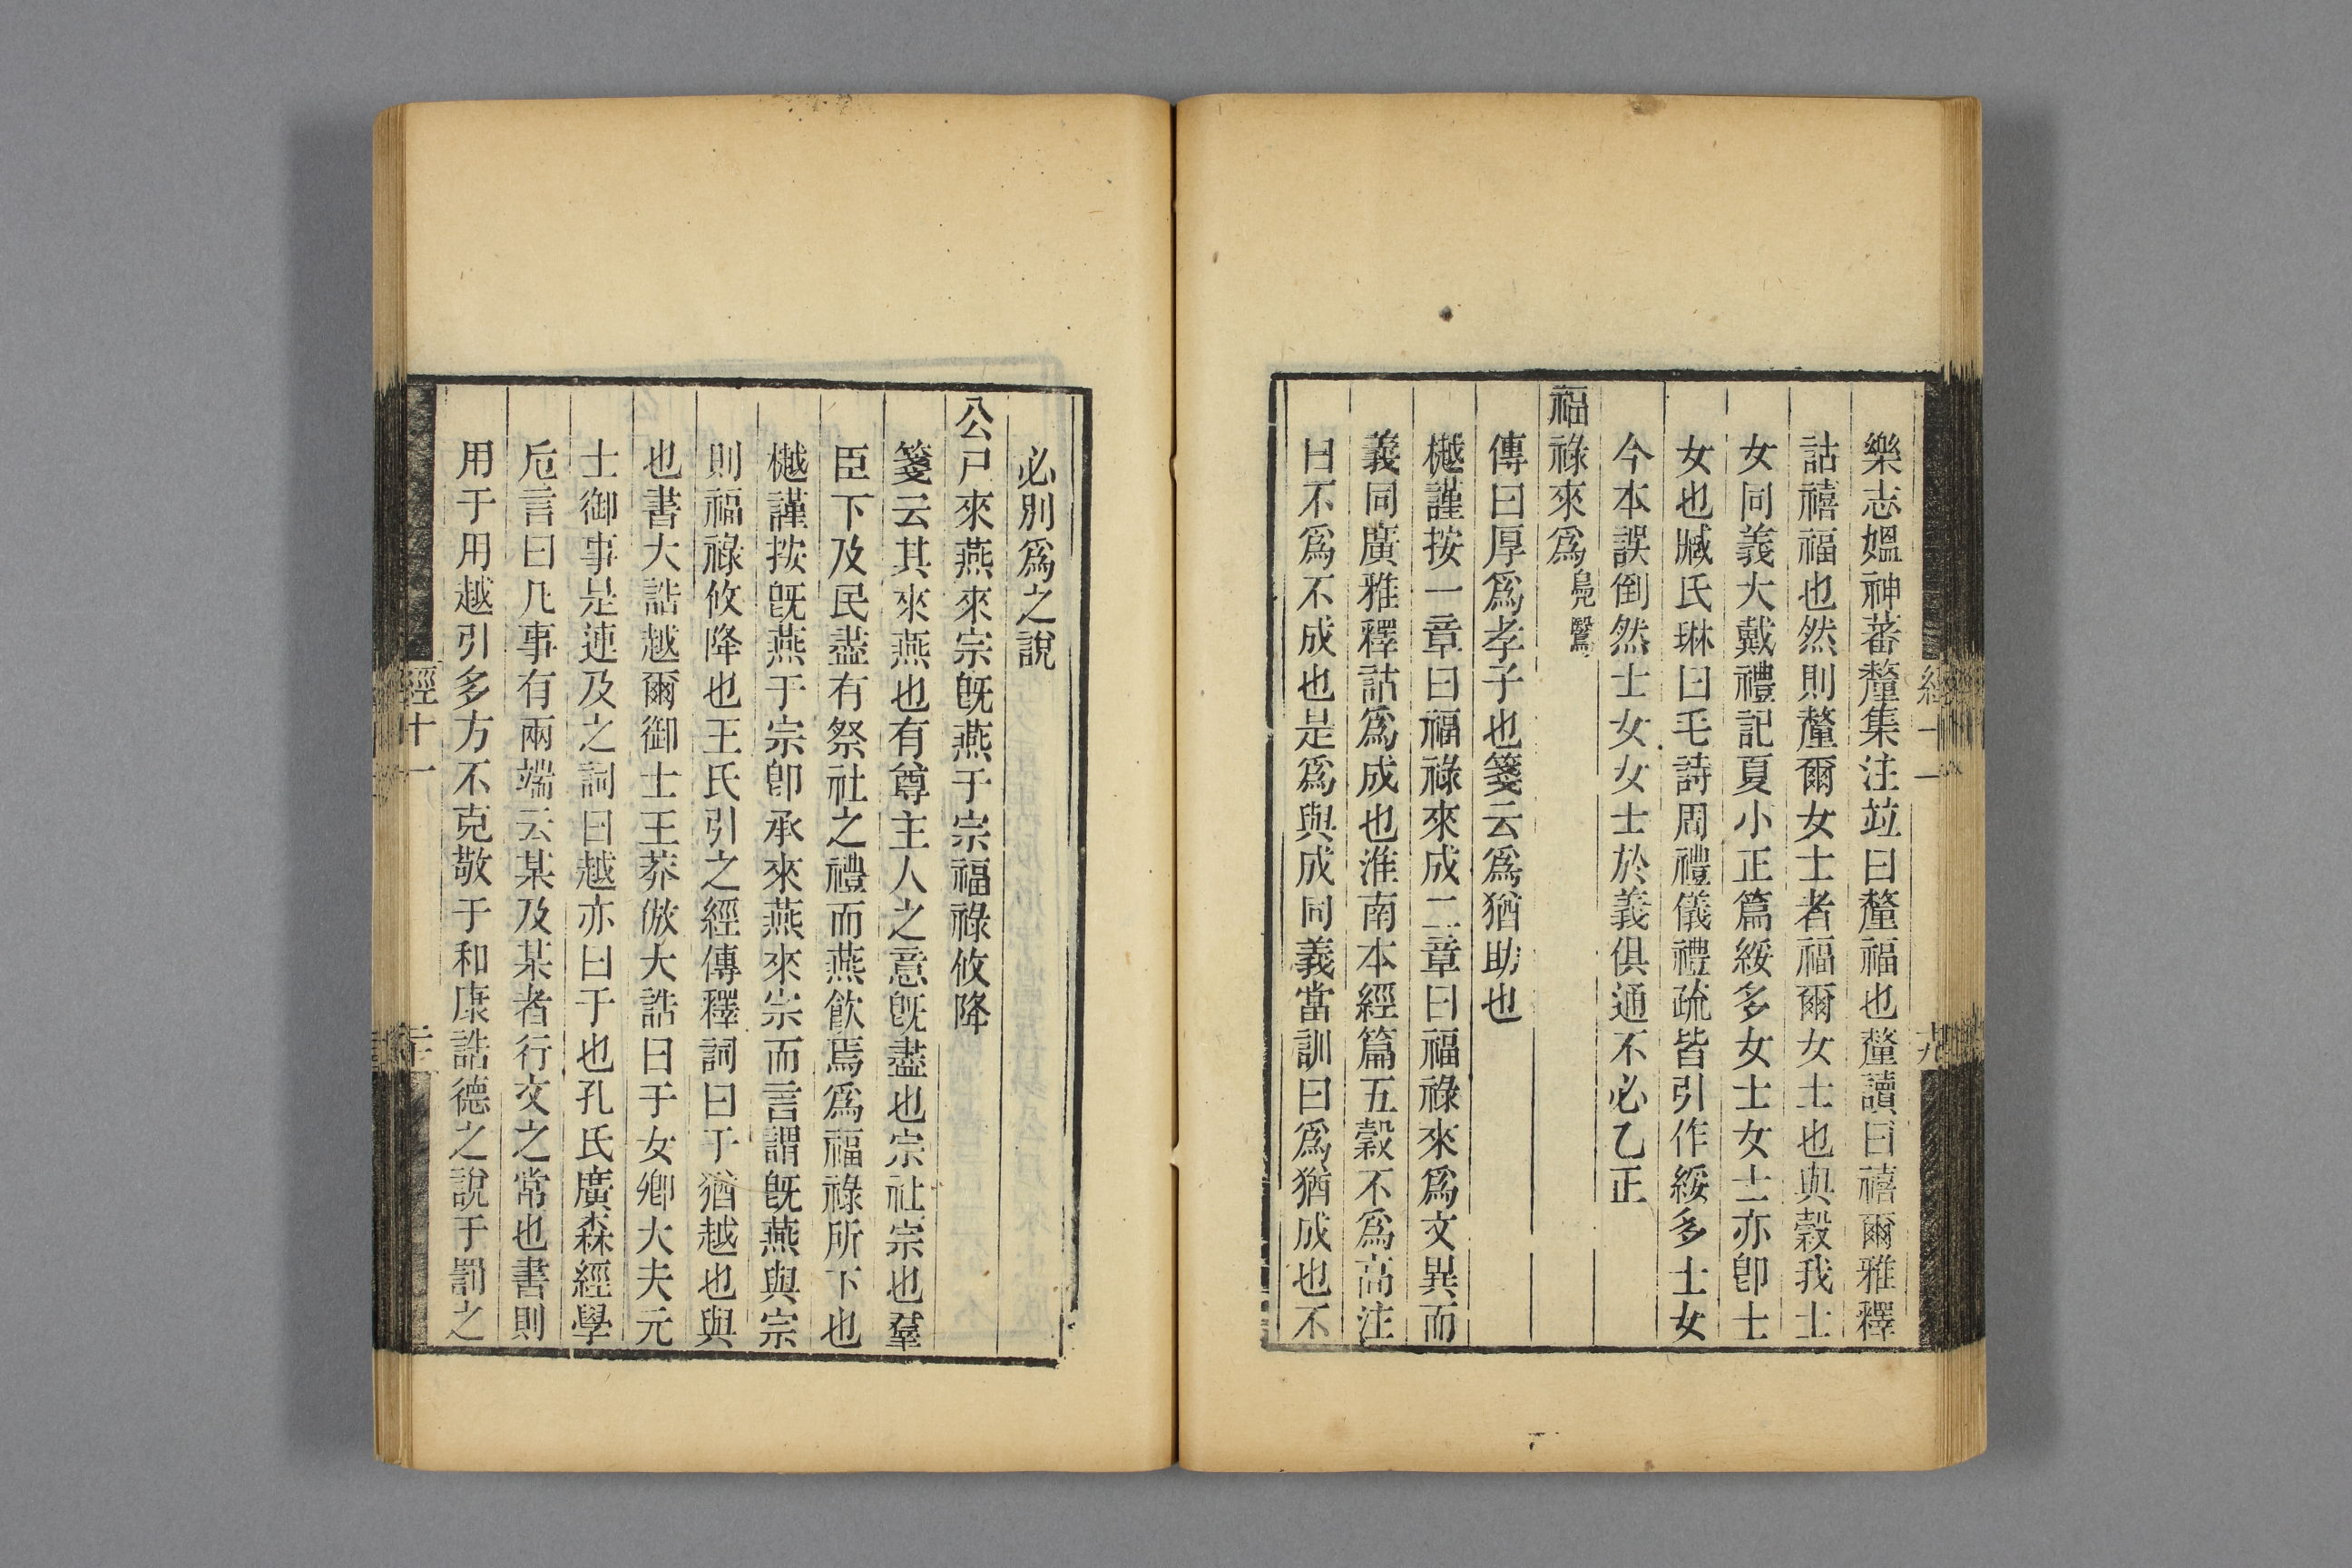 樂志媼神蕃釐集注竝曰釐福也釐讀曰禧爾雅釋
詁禧福也然則釐爾女士者福爾女士也與穀我士
女同義大戴禮記夏小正篇綏多女士女士亦卽士
女也臧氏琳曰毛詩周禮儀禮疏皆引作綏多士女
今本誤倒然士女女士於義俱通不必乙正
福祿來爲鳧鷖
傳曰厚爲孝子也箋云爲猶助也
樾謹按一章曰福祿來成二章曰福祿來爲文異而
義同廣雅釋詁爲成也淮南本經篇五穀不爲高注
曰不爲不成也是爲與成同義當訓曰爲猶成也不
經十一
十九
必別爲之說
公尸來燕來宗旣燕于宗福祿攸降
箋云其來燕也有尊主人之意旣盡也宗社宗也羣
臣下及民盡有祭社之禮而燕飮焉爲福祿所下也
樾謹按旣燕于宗卽承來燕來宗而言謂旣燕與宗
則福祿攸降也王氏引之經傳釋詞曰于猶越也與
也書大誥越爾御士王莽倣大誥曰于女卿大夫元
士御事是連及之詞曰越亦曰于也孔氏廣森經學
卮言曰凡事有兩端云某及某者行文之常也書則
用于用越引多方不克敬于和康誥德之說于罰之
經十一
二十